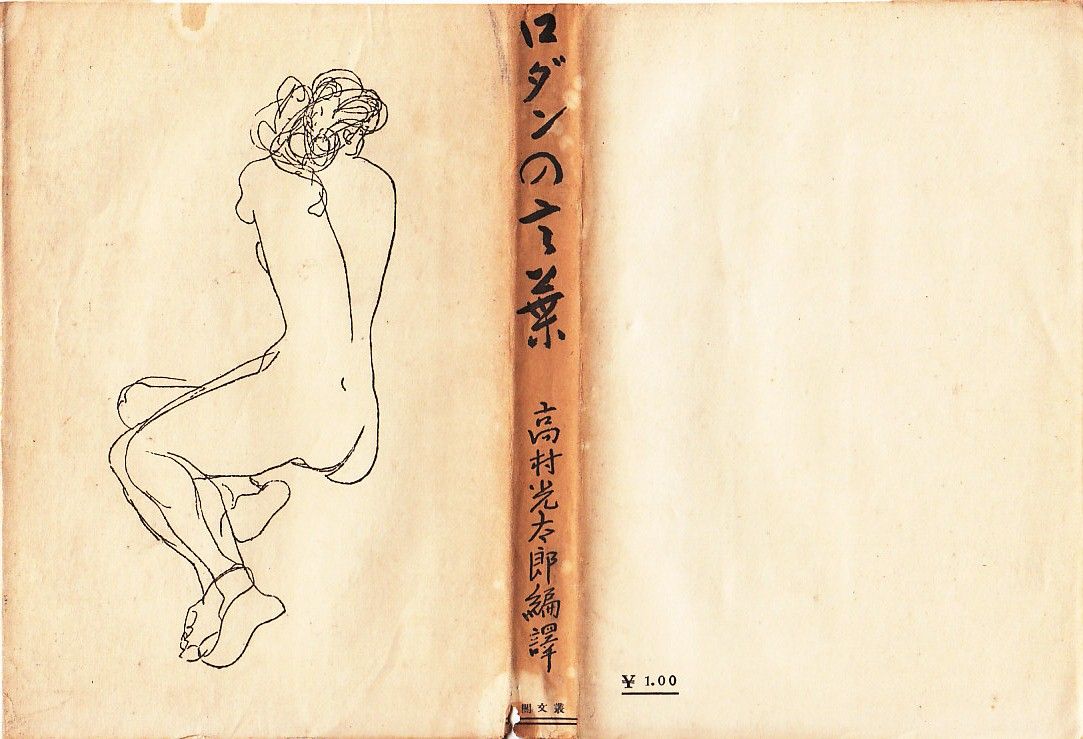 ロダンの言葉
高村光太郎編譯
閣文叢
¥ 1.00